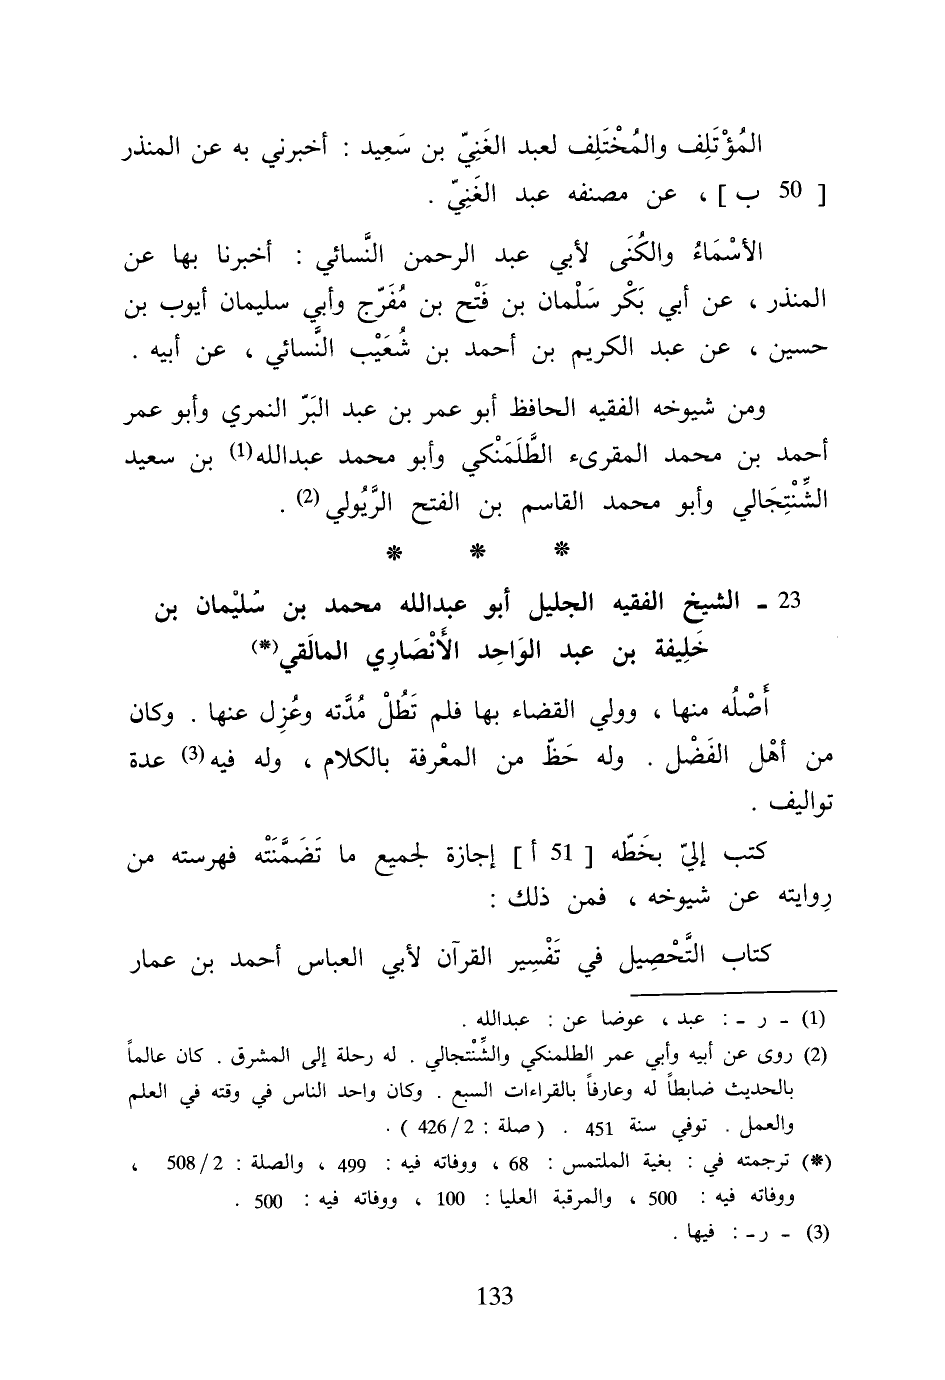 المُؤْتَلِف والمُخْتَلِف لعبد الغَنِيّ بن سَعِيد : أخبرني به عن المنذر
[ 50 ب ] ، عن مصنفه عبد الغَنِيّ .
الأسْمَاءُ والكُنَى لأبي عبد الرحمن النَّسائي : أخبرنا بها عن
المنذر ، عن أبي بَكْر سَلْمان بن فَتْح بن مُفَرّج وأبي سليمان أيوب بن
حسين ، عن عبد الكريم بن أحمد بن شُعَيْب النَّسائي ، عن أبيه .
ومن شيوخه الفقيه الحافظ أبو عمر بن عبد البَرّ النمري وأبو عمر
أحمد بن محمد المقرىء الطَّلَمَنْكي وأبو محمد عبدالله(1) بن سعيد
الشِّنْتِجَالي وأبو محمد القاسم بن الفتح الرَّيُولي(2) .
* * *
23 ـ الشيخ الفقيه الجليل أبو عبدالله محمد بن سُليْمان بن
خَلِيفة بن عبد الوَاحِد الأَنْصَارِي المالَقي(*)
أَصْلُه منها ، وولي القضاء بها فلم تَطُلْ مُدَّته وعُزِل عنها . وكان
من أهْل الفَضْل . وله حَظّ من المعْرفة بالكلام ، وله فيه(3) عدة
تواليف .
كتب إليّ بخَطّه [ 51 أ ] إجازة لجميع ما تَضَمَّنَتْه فهرسته من
رِوايته عن شيوخه ، فمن ذلك :
كتاب التَّحْصِيل في تَفْسِير القرآن لأبي العباس أحمد بن عمار
(1) ـ ر ـ : عبد ، عوضا عن : عبدالله .
(2) روى عن أبيه وأبي عمر الطلمنكي والشِّنْتجالي . له رحلة إلى المشرق . كان عالماً
بالحديث ضابطاً له وعارفاً بالقراءات السبع . وكان واحد الناس في وقته في العلم
والعمل . توفي سنة 451 . ( صلة : 2/426 ) .
(*) ترجمته في : بغية الملتمس : 68 ، ووفاته فيه : 499 ، والصلة : 2/508 ،
ووفاته فيه : 500 ، والمرقبة العليا : 100 ، ووفاته فيه : 500 .
(3) ـ ر ـ : فيها .
133